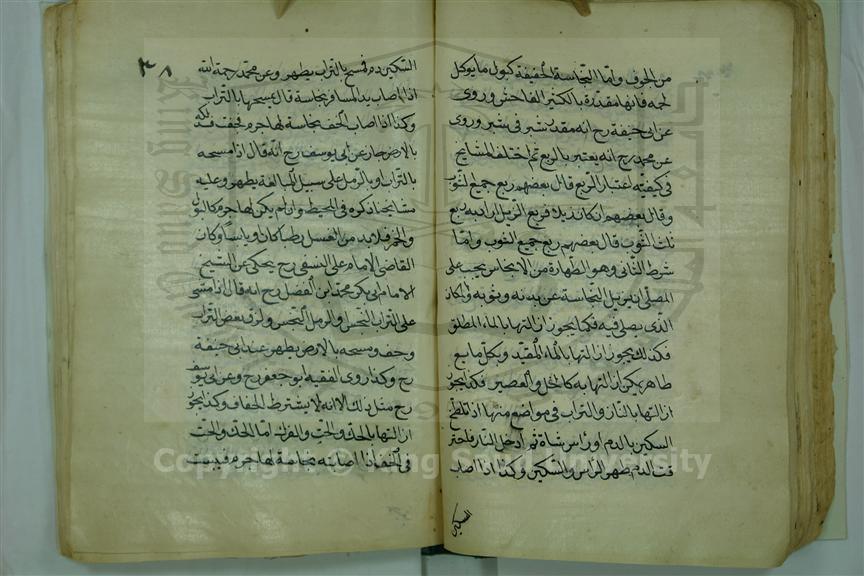 من الخوف واما النجاسة الخفيفة كبول ما يوكل
لحمه فانها مقدرة بالكثير الفاحش وروى
عن ابى حنيفة رح انه مقدر شبر فى شبر وروى
عن محمد رح انه يعتبر بالربع ثم اختلف المشايخ
فى كيفية اعتبار الربع قال بعضهم ربع جميع الثوب
وقال بعضهم ان كان ذيلا فربع الذيل اراد به ربع
ذلك الثوب قال بعضهم ربع جميع الثوب واما
شرط الثانى وهو الطهارة من الانجاس يجب على
المصلى ان يزيل النجاسة عن بدنه وثوبه والمكان
الذى يصلى فيه فكما يجوز ازالتها بالماء المطلق
فكذلك يجوز ازالتها بالماء المقيد وبكل مايع
طاهر يمكن ازالتها به كالخل والعصير فكذا يجوز
ازالتها بالنار والتراب فى مواضع منها اذا تلطخ
السكين بالدم او راس شاة ثم ادخل النار فاحتر
قت الدم طهر الراس والسكين وكذا اذا اصاب
السكين
٣٨
السكين دم فمسح بالتراب يطهر وعن محمد رحمة الله
اذا اصاب يد المسافر نجاسة قال يمسحها بالتراب
وكذا اذا اصاب الخف نجاسة لها جرم فجفت فدلكه
بالارض جاز عن ابى يوسف رح انه قال اذا مسحه
بالتراب او بالرمل على سبيل المبالغة يطهر وعليه
مشايخنا ذكره فى المحيط وان لم يكن لها جرم كالبول
والخمر فلا بد من الغسل رطبا كان او يابسا وكان
القاضى الامام على النسفى رح يحكى عن الشيخ
الامام ابى بكر محمد ابن الفضل رح انه قال اذا مشى
على التراب النجس والرمل النجس ولزق بعض التراب
وجف ومسحه بالارض يطهر عند ابى حنيفة
رح وكذا روى الفقيه ابو جعفر رح وعن ابى يوسف
رح مثل ذلك الا انه لا يشترط الجفاف وكذا يجوز
ازالتها بالحك والحت والفرك اما الحك والحت
فى الخف اذا اصابته نجاسة لها جرم فيبست